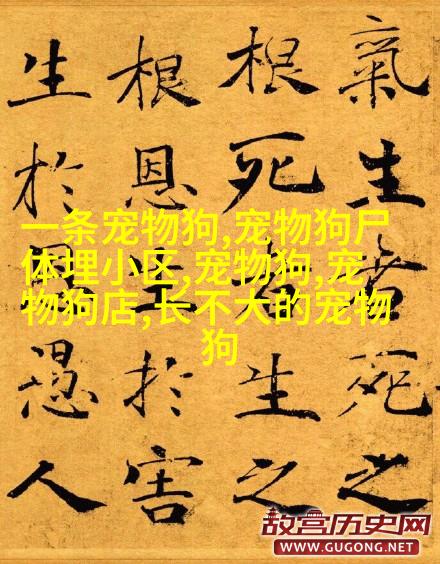 氣生者死之
根死者生之
根恩生於害
生於恩愚人
一条宠物狗,宠物狗尸
体埋小区,宠物狗,宠
物狗店,长不大的宠物
狗
故宫历史网
WWW.GUGONG.NET